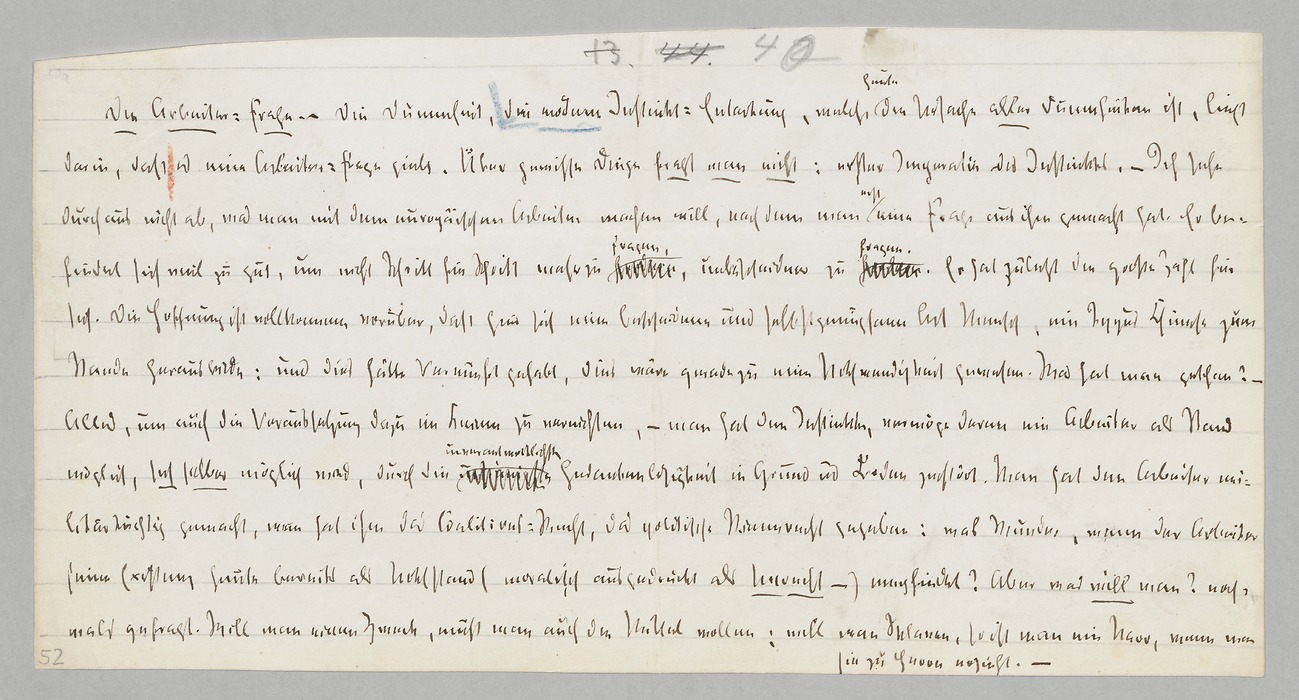 13. 44. 40
heute
Die Arbeiter=Frage. – Die Dummheit, die moderne Instinkt=Entartung, welche die Ursache aller Dummheiten ist, liegt
darin, daß es eine Arbeiter=Frage giebt. Über gewisse Dinge fragt man nicht: erster Imperativ des Instinktes. – Ich sehe
erst
durchaus nicht ab, was man mit dem europäischen Arbeiter machen will, nachdem man eine Frage aus ihm gemacht hat. Er be-
fragen, fragen.
findet sich viel zu gut, um nicht Schritt für Schritt mehr zu , unbescheidner zu . Er hat zuletzt die große Zahl für
sich. Die Hoffnung ist vollkommen vorüber, daß hier sich eine bescheidene und selbstgenügsame Art Mensch, ein Typus Chinese zum
Stande herausbilde: und dies hätte Vernunft gehabt, dies wäre geradezu eine Nothwendigkeit gewesen. Was hat man gethan? –
Alles, um auch die Voraussetzung dazu im Keime zu vernichten, – man hat die Instinkte, vermöge deren ein Arbeiter als Stand
unverantwortlichste
möglich, sich selber möglich wird, durch die Gedankenlosigkeit in Grund und Boden zerstört. Man hat den Arbeiter mi-
litärtüchtig gemacht, man hat ihm das Coalitions=Recht, das politische Stimmrecht gegeben: was Wunder, wenn der Arbeiter
seine Existenz heute bereits als Nothstand (moralisch ausgedrückt als Unrecht –) empfindet? Aber was will man? noch-
mals gefragt. Will man einen Zweck, muß man auch die Mittel wollen: will man Sklaven, so ist man ein Narr, wenn man
sie zu Herrn erzieht. –
52